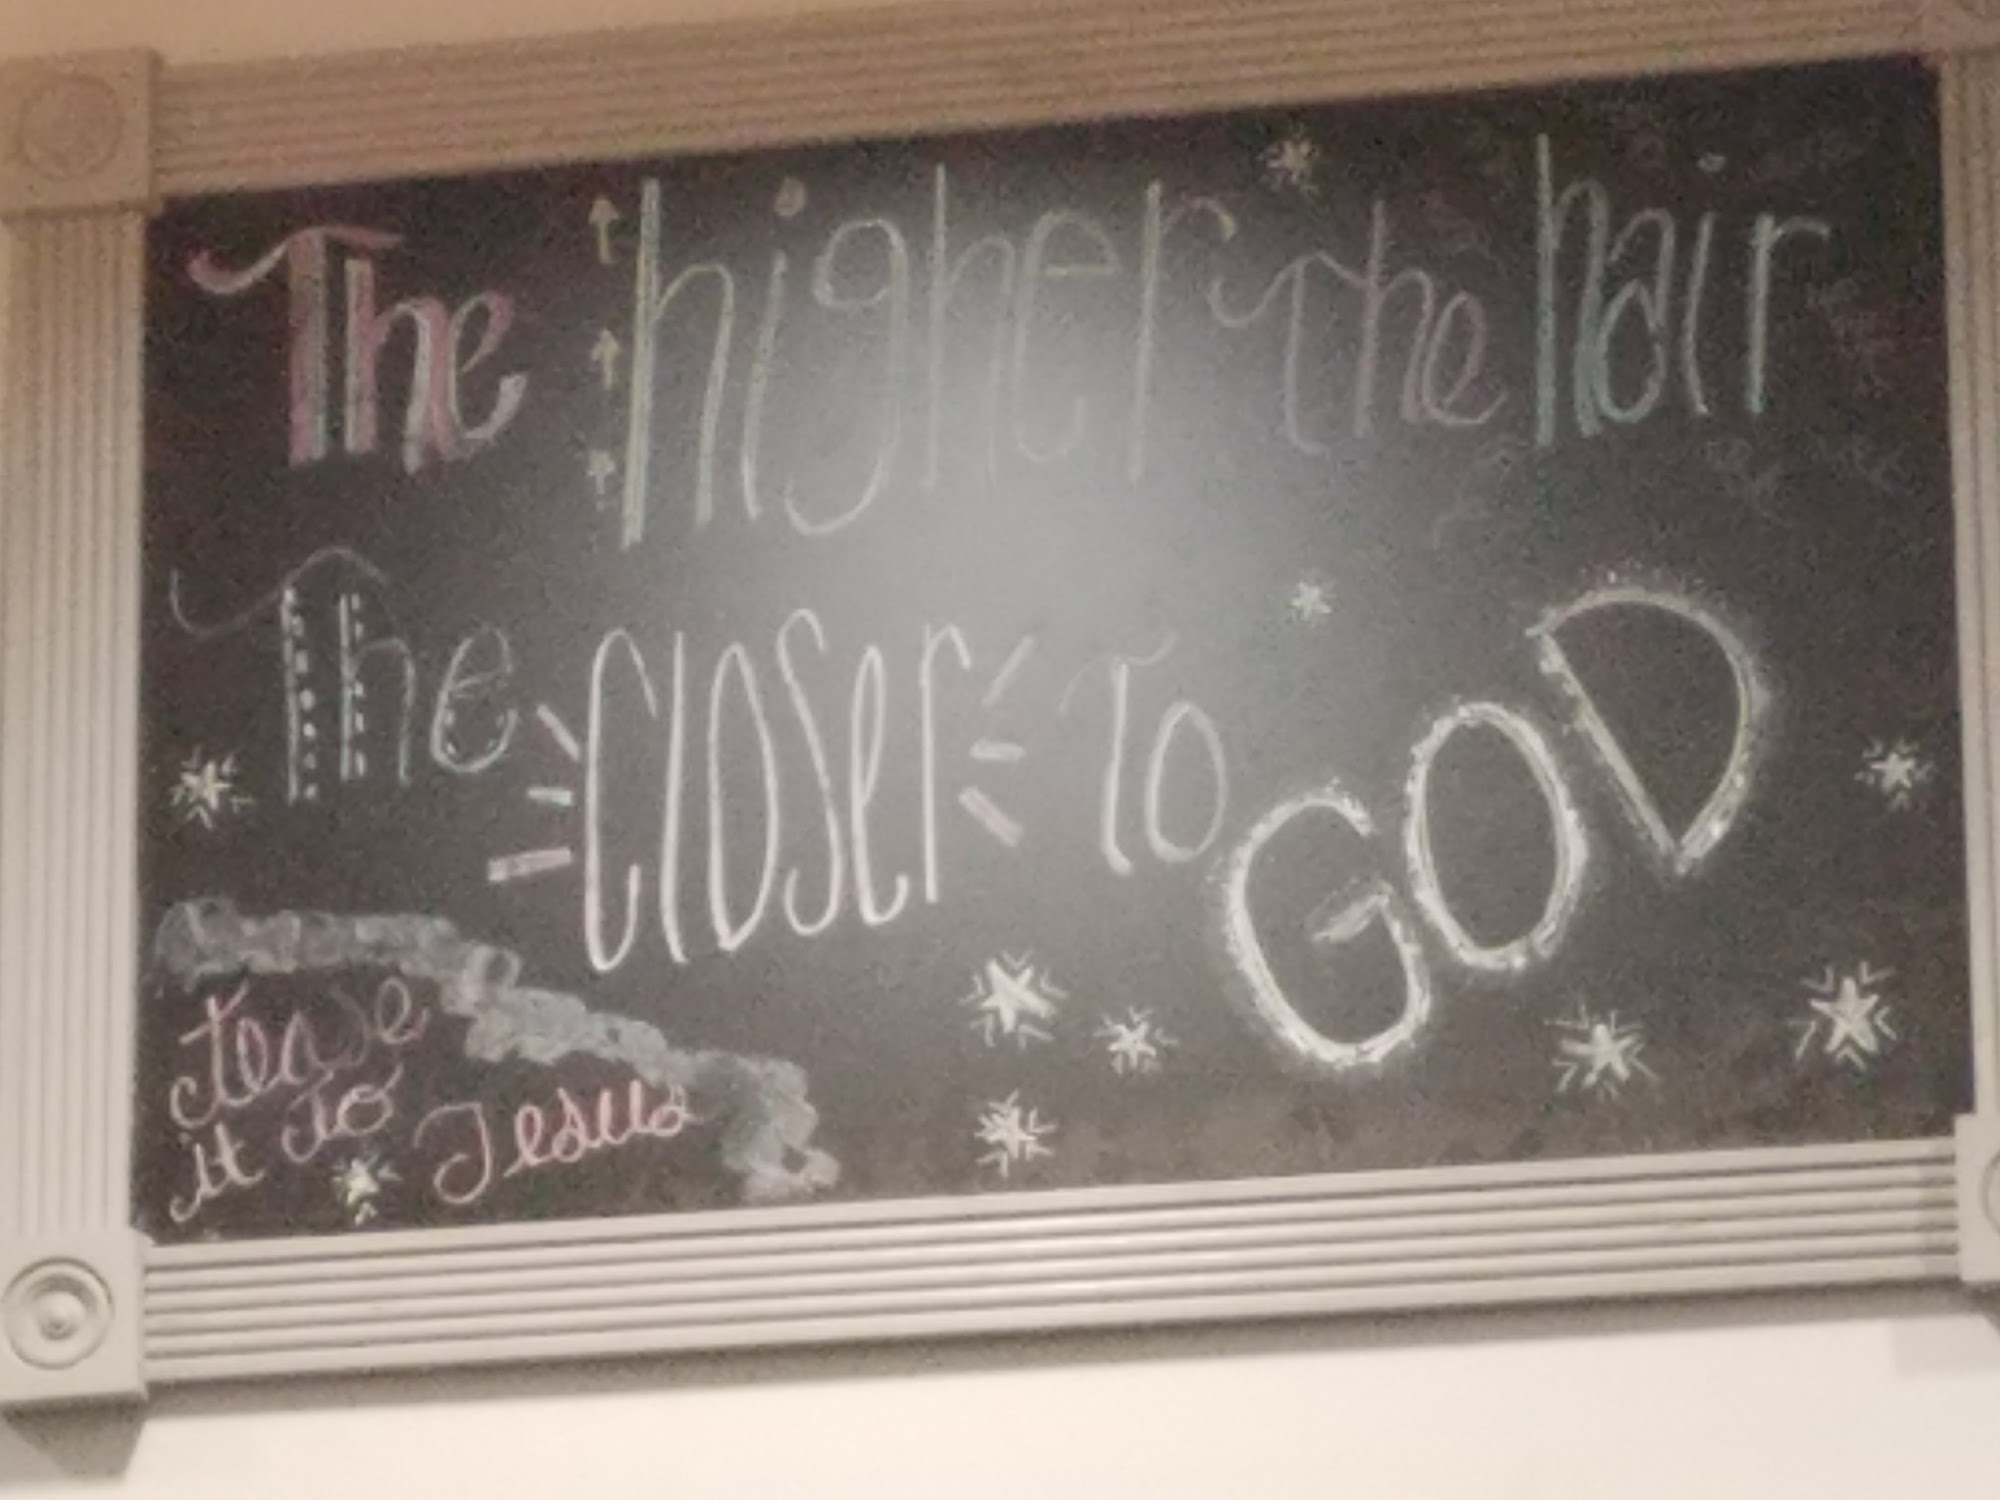 The higher the hair
The closer To GOD
tease
it to Jesus